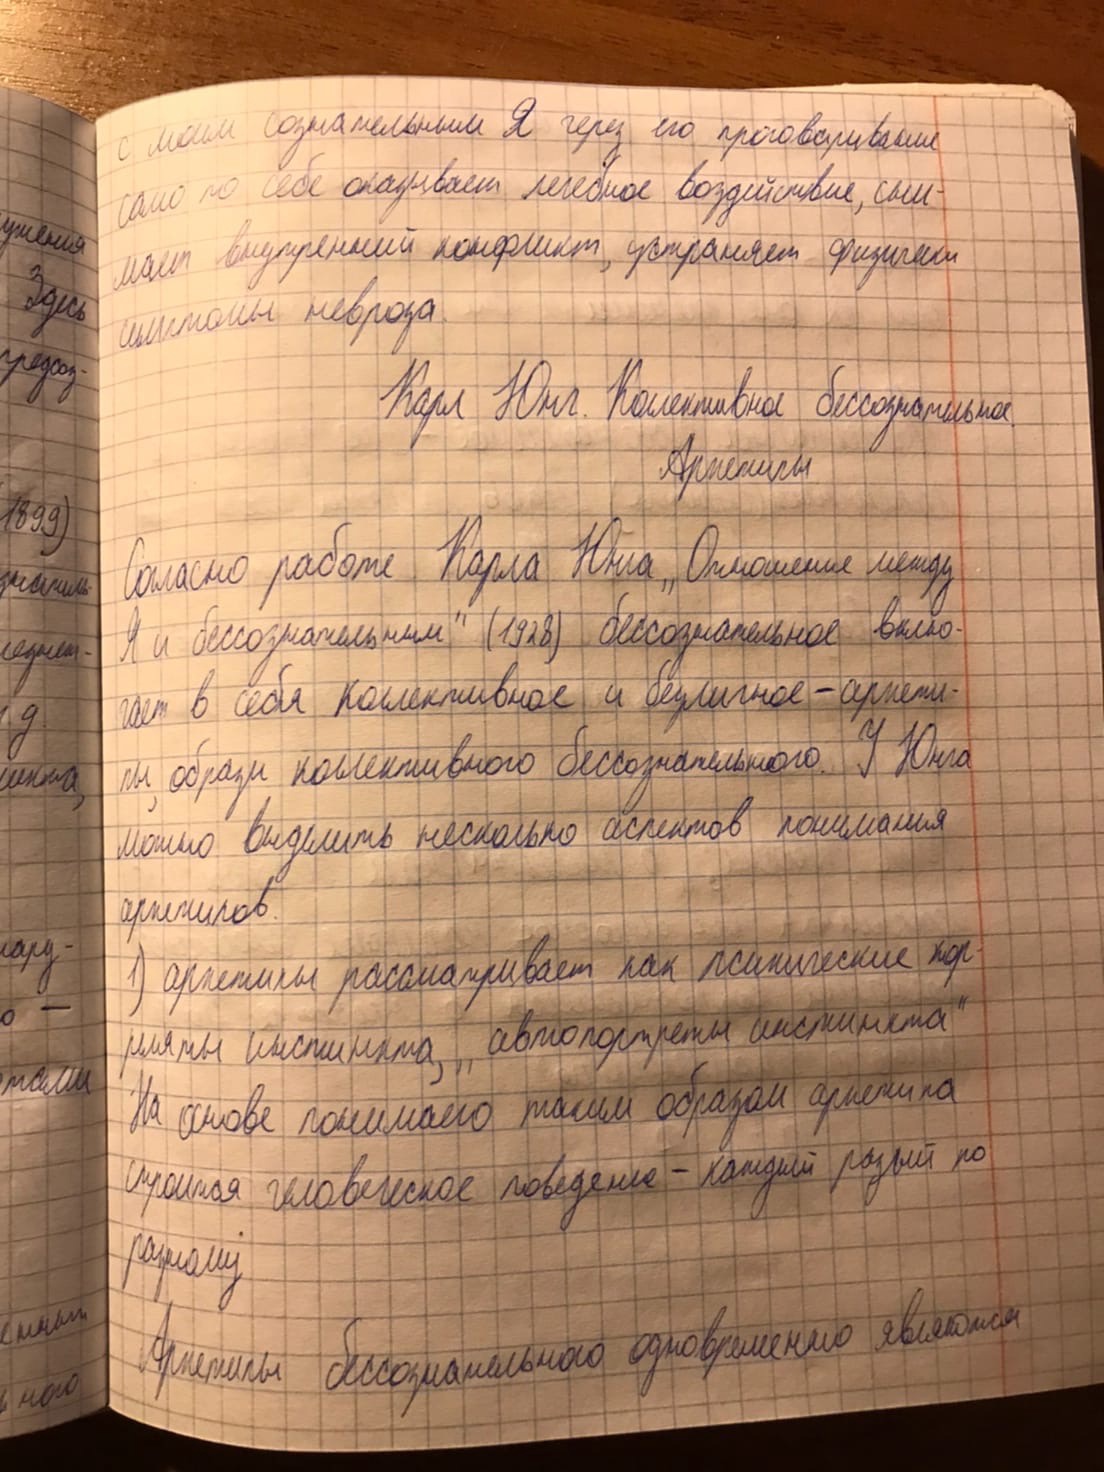 с моим сознательным Я через его проговаривание
само по себе оказывает лечебное воздействие, сни-
мает внутренний конфликт, устраняет физически
симптомы невроза.
Карл Юнг. Коллективное бессознательное.
Архетипы
Согласно работе Карла Юнга „Отношения между
Я и бессознательным" (1928) бессознательное вклю-
чает в себя коллективное и безличное – архети-
пы, образы коллективного бессознательного. У Юнга
можно выделить несколько аспектов понимания
архетипов.
1) архетипы рассматривает как психические кор-
реляты инстинкта, „автопортреты инстинкта"
На основе понимаего таким образом архетипа
строится человеческое поведение – каждый разый по
разному
Архетипы бессознательного одновременно являются
ужения
Здесь
предсоз-
1899)
д.
о —
ного